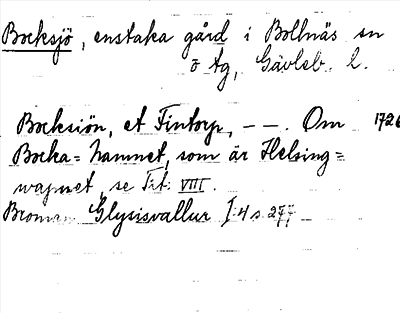 Bocksjö, enstaka gård i Bollnäs sn
ö tg, Gävleb. l.
Bocksiön, et Fintorp, – –. Om 1726
Bocka=Namnet, som är Helsing=
wapnet, se Tit: VIII.
Broman Glysisvallur I:4 s. 277